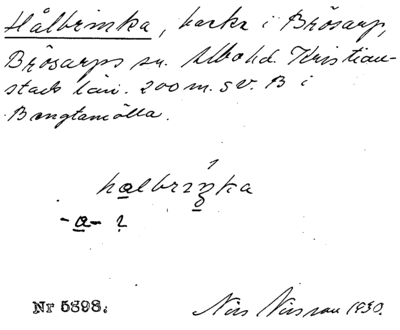 Hålbrinka, backe i Brösarp,
Brösarps sn. Albo hd. Kristian-
stads län. 200 m. SV. B i
Bengtemölla.
halbriŋka
-a- ?
Nr 5898. Nils Nilsson 1930.